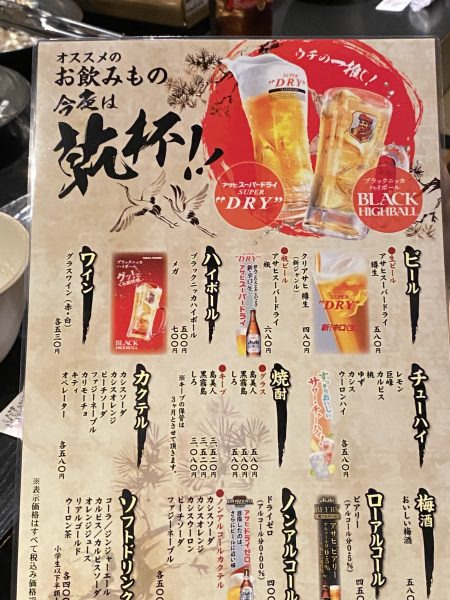 オススメの
お飲みもの
今夜は
乾杯!!
ウチの一推し!
SUPER
"DRY"
アサヒスーパードライ
SUPER
"DRY"
ブラックニッカ
ハイボール
BLACK
HIGHBALL
ビール
●生ビール
アサヒスーパードライ
樽生
五八〇円
クリアアサヒ 樽生
(新ジャンル)
四八〇円
●瓶ビール
アサヒスーパードライ
瓶
六八〇円
SUPER
"DRY"
新!辛口〈生〉
ハイボール
ブラックニッカハイボール
五〇〇円
メガ
七〇〇円
ブラックニッカ
ハイボール
BLACK
HIGHBALL
ワイン
グラスワイン(赤・白)
各五三〇円
チューハイ
レモン
巨峰
カルピス
桃
ゆず
カシス
ウーロンハイ
各五三〇円
サワーチューハイ
焼酎
●グラス
島美人
黒霧島
しろ
●キープ
島美人
黒霧島
しろ
※キープの保管は
3ヶ月とさせて頂きます。
カクテル
カシスソーダ
カシスオレンジ
ファジーネーブル
ピーチソーダ
カリモーチョ
キティ
オペレーター
各五八〇円
梅酒
おいしい梅酒
ローアルコール
ビアリー
(アルコール分0.5%)
ノンアルコール
ドライゼロ
(アルコール分0.00%)
●ノンアルコールカクテル
カシスソーダ
カシスオレンジ
カシスウーロン
ピーチソーダ
ファジーネーブル
ソフトドリンク
コーラ/ジンジャーエール
カルピス/カルピスソーダ
オレンジジュース
リアルゴールド
ウーロン茶
小学生以下半額
※表示価格はすべて税込み価格で